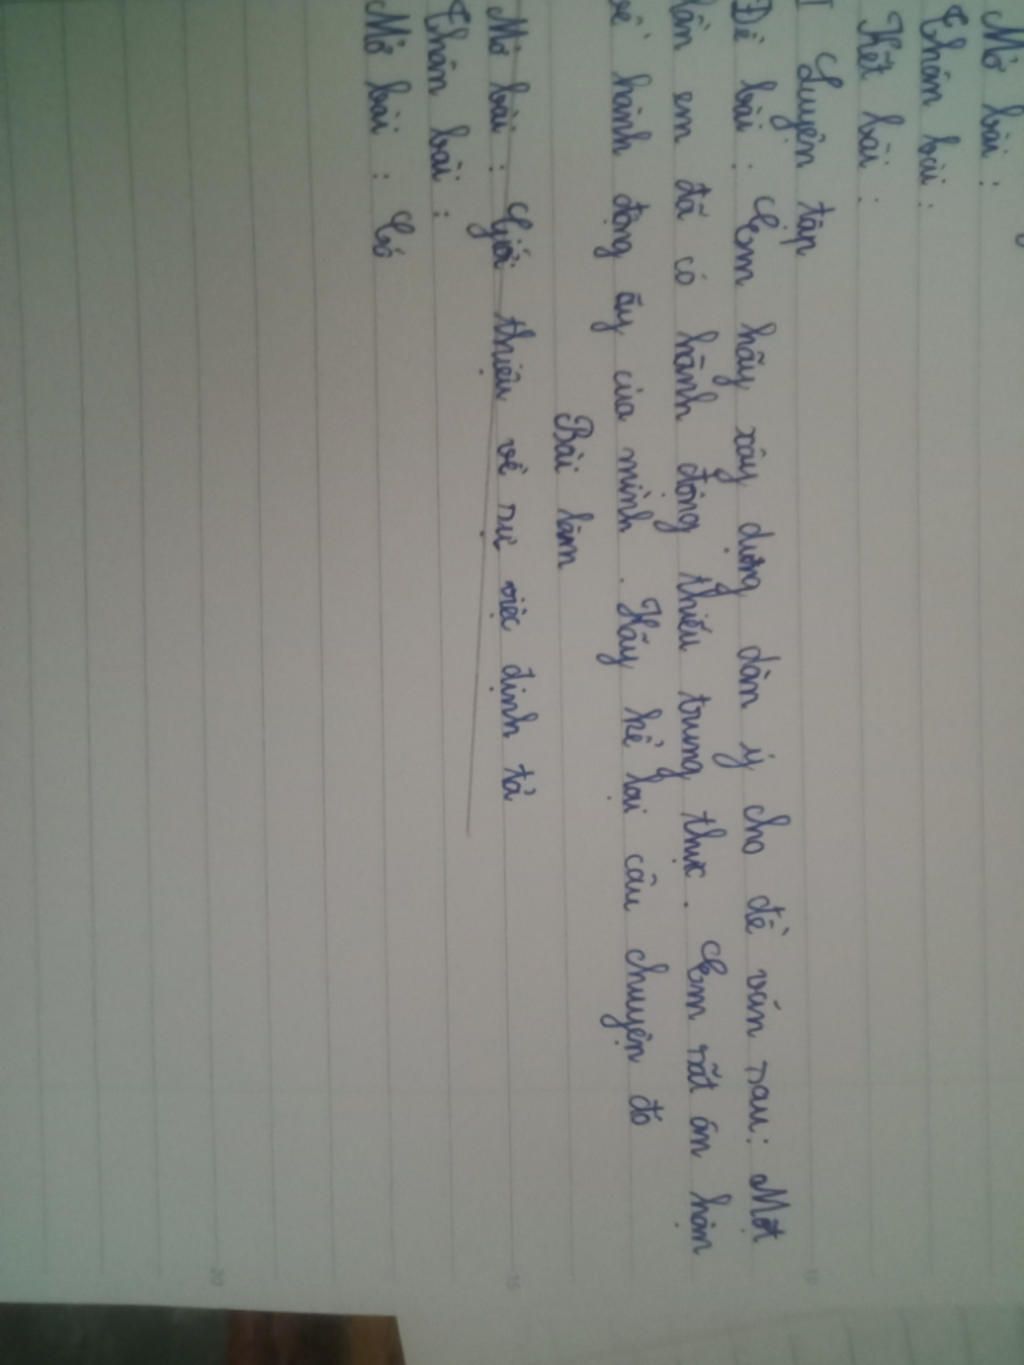 Mở bài :
Thân bài :
Kết bài :
I Luyện tập
Đề bài : Em hãy xây dựng dàn ý cho đề văn sau : Một
lần em đã có hành động thiếu trung thực . Em rất ân hận
về hành động ấy của mình . Hãy kể lại câu chuyện đó
Bài làm
Mở bài : Giới thiệu về sự việc định tả
Thân bài :
Mở bài : Có
10
15
20